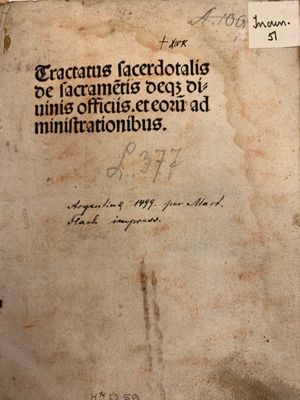 A. 100
Incun.
51
Tractatus sacerdotalis
de sacramētis deqꝫ di-
uinis officiis. et eorū ad
ministrationibus.
L. 377
Argentinę 1499 per Mart.
Flach impress.